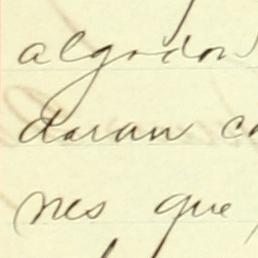 algodon
daran co
nes que